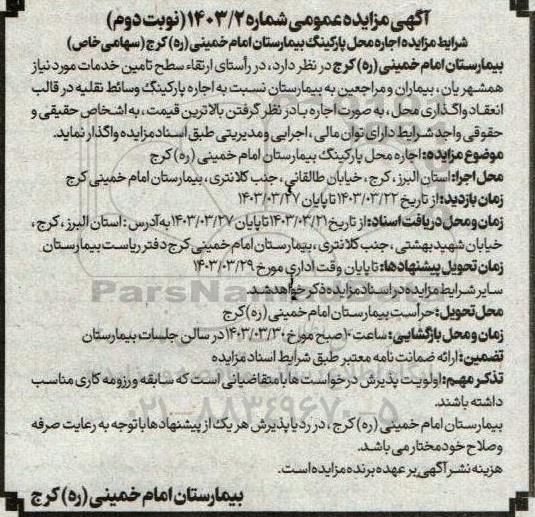 آگهی مزایده عمومی شماره ۱۴۰۳/۲ (نوبت دوم)
شرایط مزایده اجاره محل پارکینگ بیمارستان امام خمینی (ره) کرج (سهامی خاص)
بیمارستان امام خمینی (ره) کرج در نظر دارد، در راستای ارتقاء سطح تامین خدمات مورد نیاز
همشهریان، بیماران و مراجعین به بیمارستان نسبت به اجاره پارکینگ وسائط نقلیه در قالب
انعقاد واگذاری محل، به صورت اجاره با در نظر گرفتن بالاترین قیمت، به اشخاص حقیقی و
حقوقی واجد شرایط دارای توان مالی، اجرایی و مدیریتی طبق اسناد مزایده واگذار نماید.
موضوع مزایده: اجاره محل پارکینگ بیمارستان امام خمینی (ره) کرج
محل اجرا: استان البرز، کرج، خیابان طالقانی، جنب کلانتری، بیمارستان امام خمینی کرج
زمان بازدید: از تاریخ ۱۴۰۳/۰۳/۲۲ تا پایان ۱۴۰۳/۰۳/۲۷
زمان و محل دریافت اسناد: از تاریخ ۱۴۰۳/۰۳/۲۱ تا پایان ۱۴۰۳/۰۳/۲۷ به آدرس: استان البرز، کرج،
خیابان شهید بهشتی، جنب کلانتری، بیمارستان امام خمینی کرج دفتر ریاست بیمارستان
زمان تحویل پیشنهادها: تا پایان وقت اداری مورخ ۱۴۰۳/۰۳/۲۹
سایر شرایط مزایده در اسناد مزایده ذکر خواهد شد.
محل تحویل: حراست بیمارستان امام خمینی (ره) کرج
زمان و محل بازگشایی: ساعت ۱۰ صبح مورخ ۱۴۰۳/۰۳/۳۰ در سالن جلسات بیمارستان
تضمین: ارائه ضمانت نامه معتبر طبق شرایط اسناد مزایده
تذکر مهم: اولویت پذیرش درخواست ها با متقاضیانی است که سابقه و رزومه کاری مناسب
داشته باشند.
بیمارستان امام خمینی (ره) کرج، در رد یا پذیرش هر یک از پیشنهادها با توجه به رعایت صرفه
و صلاح خود مختار می باشد.
هزینه نشر آگهی بر عهده برنده مزایده است.
بیمارستان امام خمینی (ره) کرج
ParsNamadData
۰۲۱-۸۸۳۴۹۶۷۰-۵